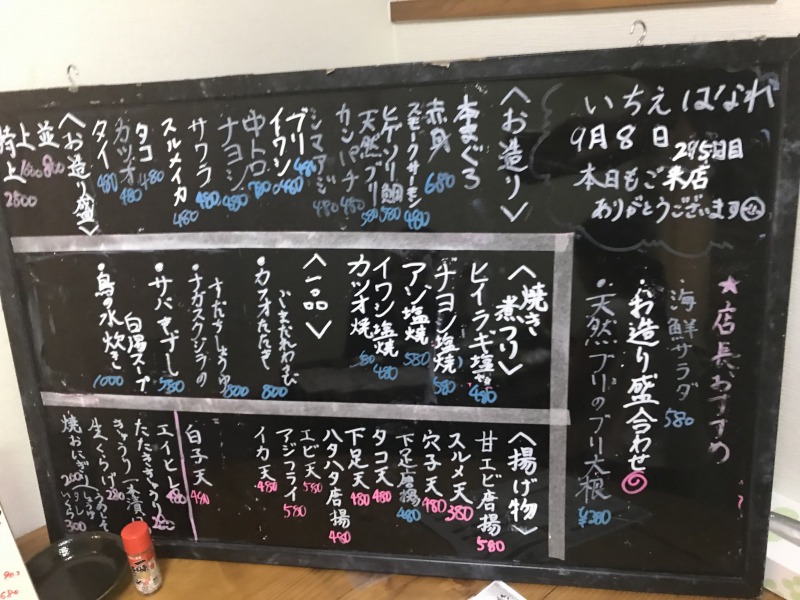 いちえはなれ
9月8日
295日目
本日もご来店
ありがとうございます
★店長おすすめ
・海鮮サラダ 580
・お造り盛合わせ
・天然ブリのブリ大根 ¥380
〈お造り〉
本まぐろ
赤身 680
スモークサーモン 480
ヒゲソリ鯛 580
天然ブリ 580
カンパチ 480
シマアジ 480
ブリ 480
イワシ 480
中トロ 780
ナヨシ 480
サワラ 480
スルメイカ 480
タコ 480
カツオ 480
タイ 480
〈お造り盛〉
並 800
上 1600
特上 2800
〈焼き 煮つけ〉
ヒイラギ塩焼 480
ナヨシ塩焼 580
アジ塩焼 580
イワシ塩焼 480
カツオ焼
〈一品〉
・カツオたたき 800
・ナガスクジラの 800
・サバきずし 580
白湯スープ
・鳥の水炊き 1000
〈揚げ物〉
甘エビ唐揚 580
スルメ天 380
穴子天 480
下足唐揚 480
タコ天 480
下足天 480
ハタハタ唐揚 480
エビ天 580
アジフライ 580
イカ天 480
白子天 480
エイヒレ 480
たたききゅうり
きゅうり一本漬け
生くらげ 280
焼おにぎり 200
300